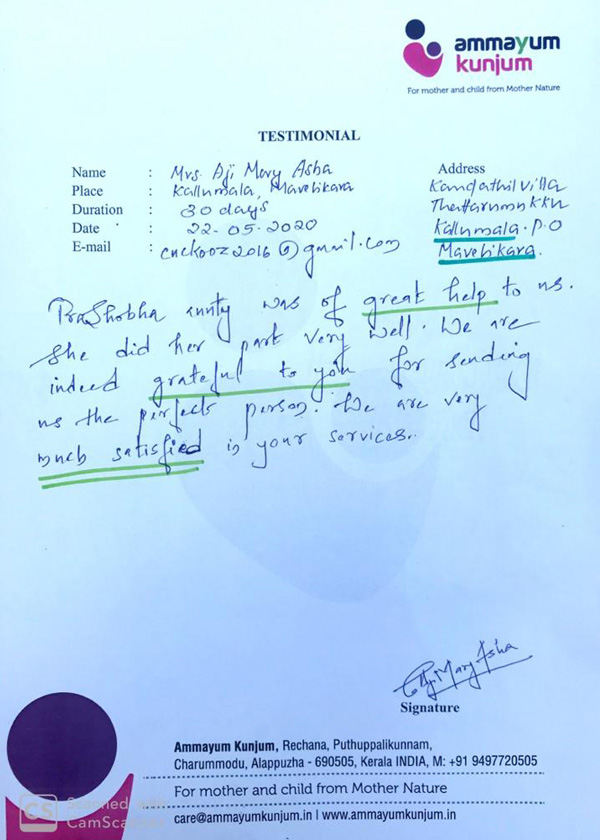 ammayum
kunjum
For mother and child from Mother Nature
TESTIMONIAL
Name : Mrs. Aji Mary Asha
Place : Kallumala, Mavelikara
Duration : 30 days
Date : 22-05-2020
E-mail : cuckooz2016@gmail.com
Address
Kandathil Villa
Kallumala. P.O
Mavelikara.
PraShobha aunty was of great help to us.
She did her part very well. We are
indeed grateful to you for sending
us the perfect person. We are very
much satisfied in your services.
Aji Mary Asha
Signature
Ammayum Kunjum, Rechana, Puthuppalikunnam,
Charummodu, Alappuzha - 690505, Kerala INDIA, M: +91 9497720505
For mother and child from Mother Nature
care@ammayumkunjum.in | www.ammayumkunjum.in
CS Scanned with
CamScanner